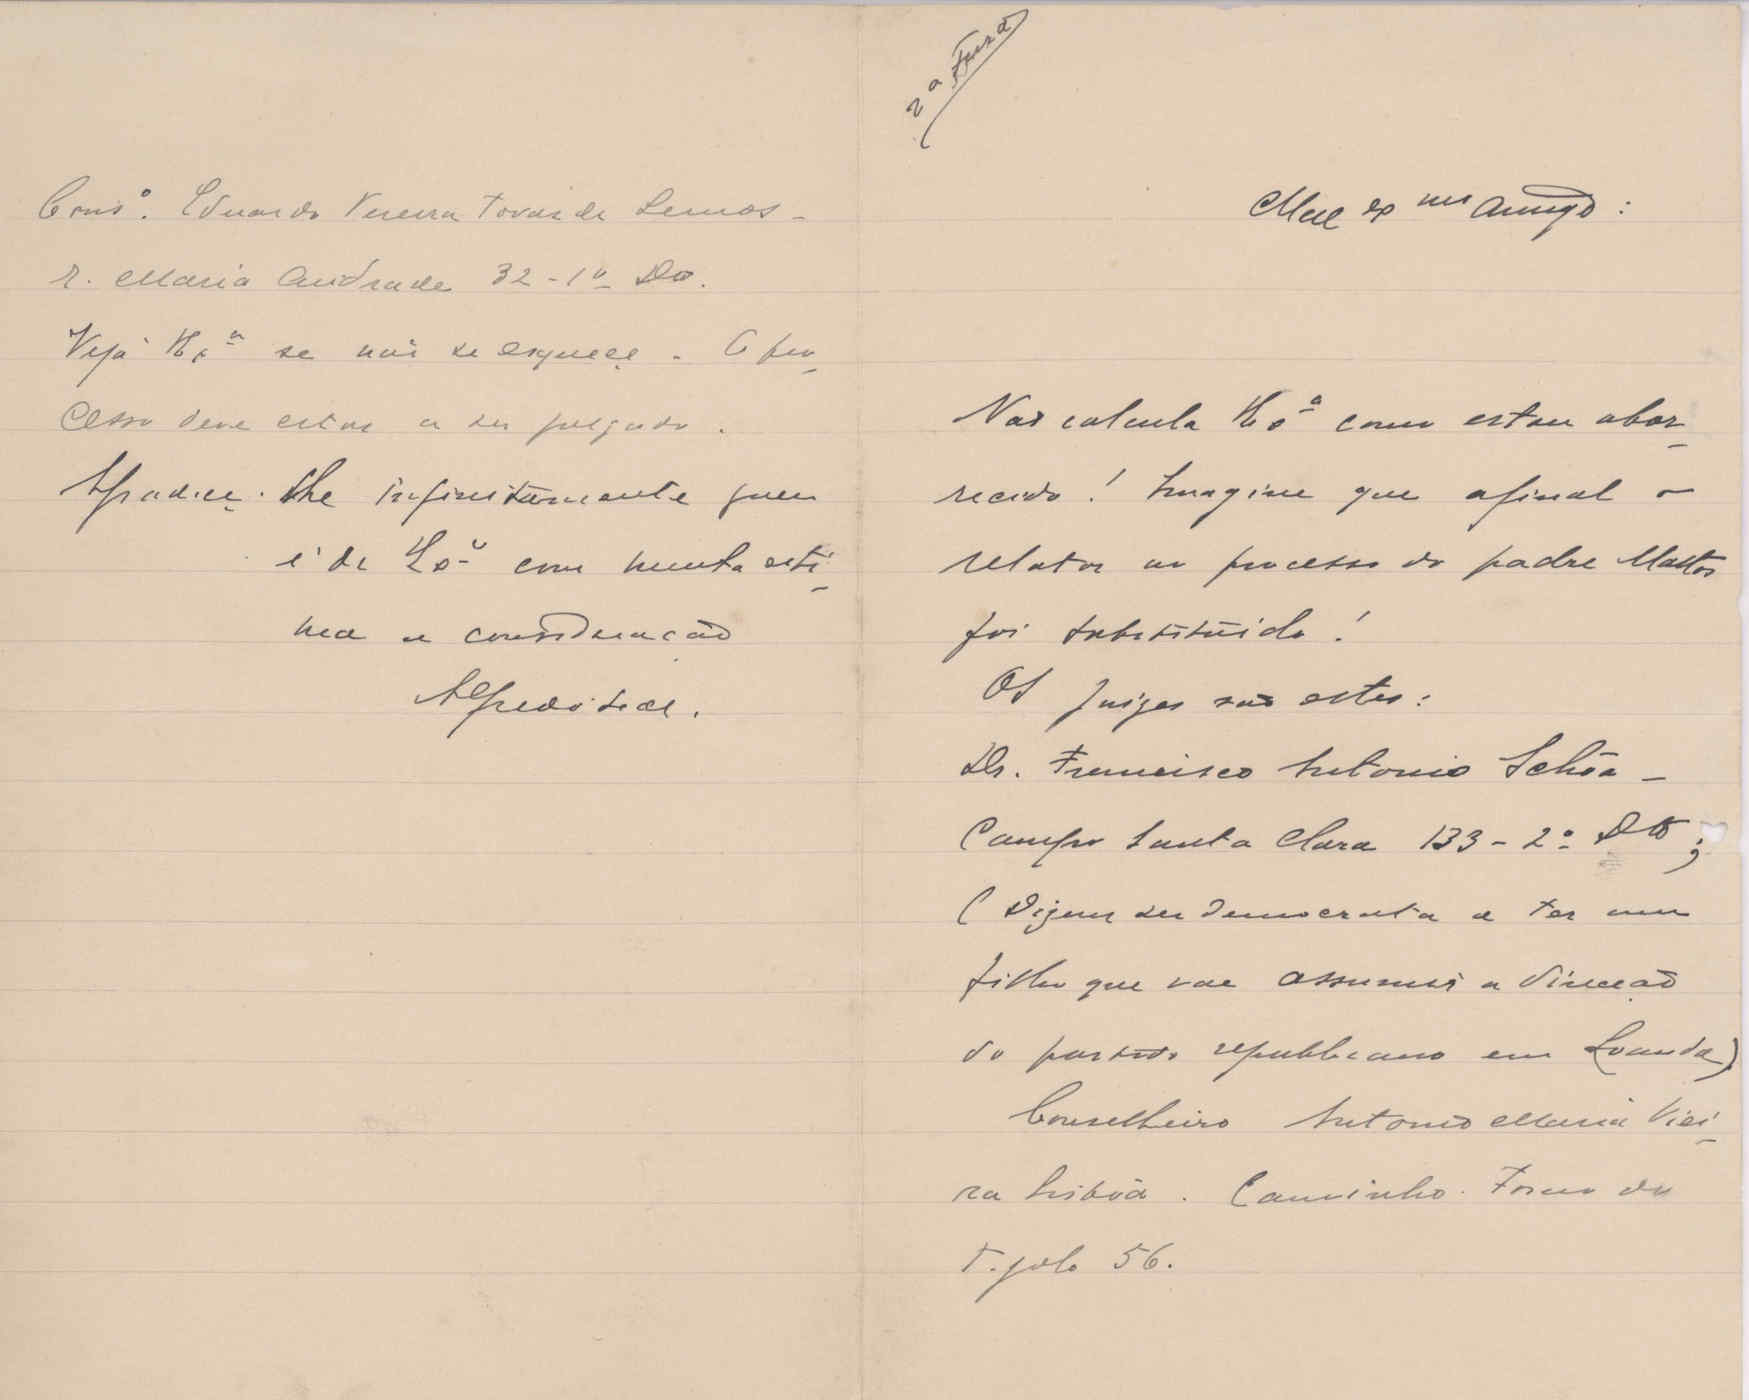 2ª Feira
Meu exmo Amigo:
Não calcula V. Exª como estou abor-
recido! Imagine que afinal o
relator no processo do padre Mattos
foi substituido!
Os juizes são estes:
Dr. Francisco Antonio Ochôa -
Campo Santa Clara 133 - 2º Dto;
(Dizem ser democrata e ter um
filho que vae assumir a direcção
do partido republicano em Loanda)
Conselheiro Antonio Maria Viei-
ra Lisbôa. Caminho Forno do
Tijolo 56.
Consº. Eduardo Tovar de Lemos -
R. Maria Andrade 32 - 1º Dto.
Veja V. Exª se não se esquece. O pro-
cesso deve estar a ser julgado.
Agradece-lhe infinitamente quem
é de V. Exª com muita esti-
ma e consideração
Alfredo Leal.